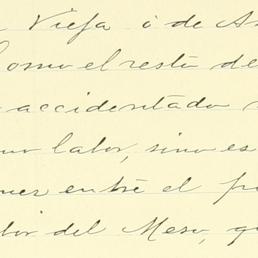 Vieja ó de A
Como el resto de
accidentado
labor, sino es
entre el
del Mesa, qu